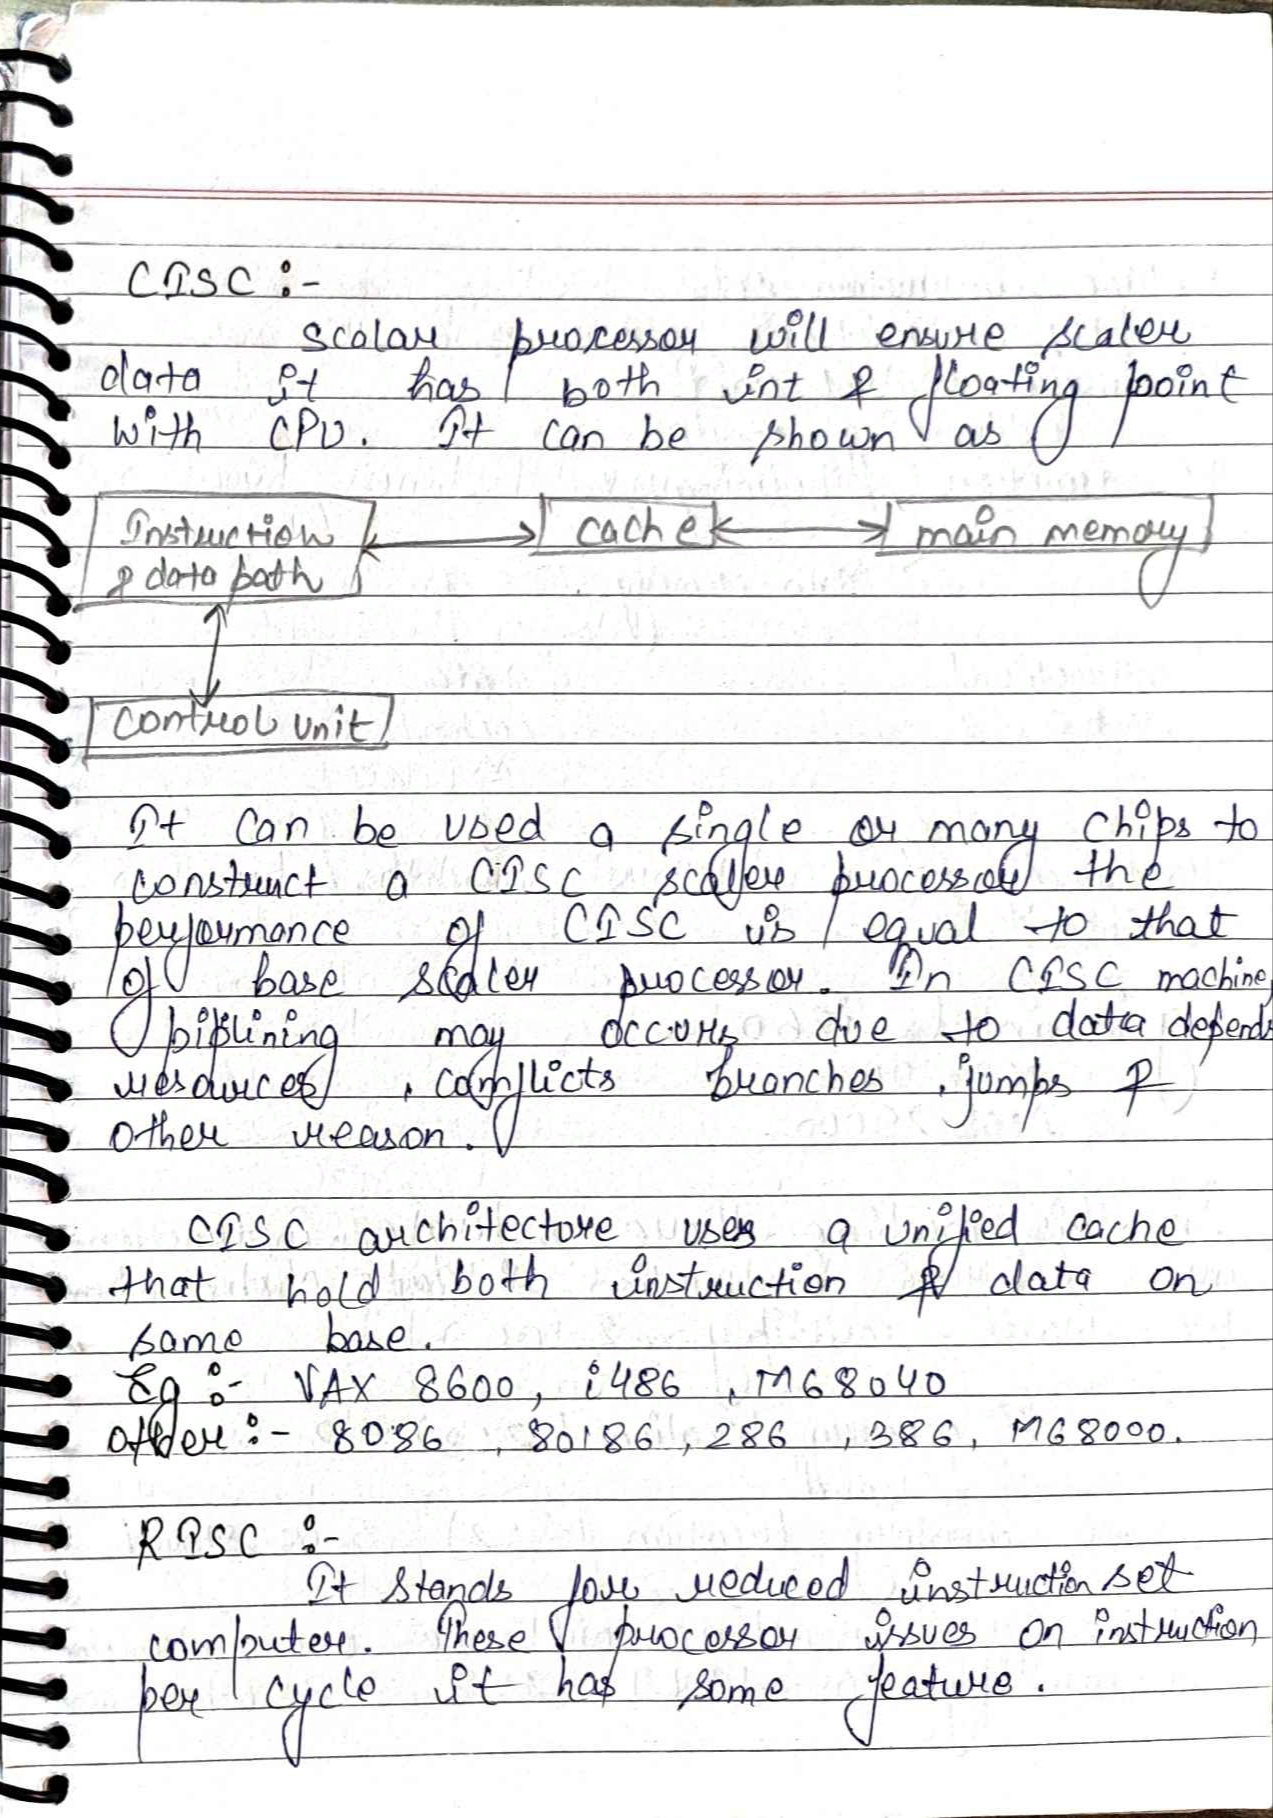 CISC :-
scalar processor will ensure scaler
data it has both int & floating point
with CPU. It can be shown as
Instruction & data path
cache
main memory
control unit
It can be used a single or many chips to
construct a CISC scaler processor the
performance of CISC is equal to that
of base scaler processor. In CISC machine,
piplining may occurs due to data depends
resources, conflicts branches, jumps &
other reason.
CISC architecture uses a unified cache
that hold both instruction & data on
same base.
Eg :- VAX 8600, i486, M68040
other :- 8086, 80186, 286, 386, M68000.
RISC :-
It stands for reduced instruction set
computer. These processor issues on instruction
per cycle it has some feature.